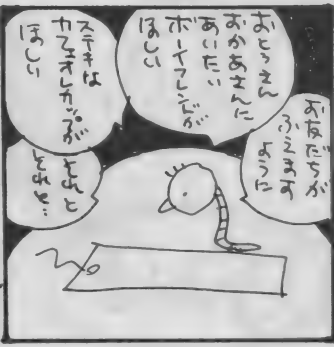 お友だちが
ふえます
ように
おとうさん
おかあさんに
あいたい
ボーイフレンドが
ほしい
ステキな
カフェオレカップが
ほしい
それと
それと…